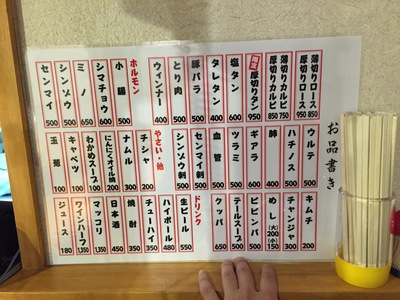 お品書き
薄切りロース 850
厚切りロース 950
薄切りカルビ 750
厚切りカルビ 850
限定 厚切りタン 950
塩タン 600
タレタン 400
豚バラ 500
とり肉 500
ウィンナー 400
ホルモン
小腸 500
シマチョウ 600
ミノ 650
シンゾウ 500
センマイ 500
ウルテ 500
ハチノス 500
肺 400
ギアラ 500
ツラミ 500
血管 500
センマイ刺 500
シンゾウ刺 500
やさい・他
チシャ 200
ナムル 300
にんにくオイル焼 200
わかめスープ 100
キャベツ 100
玉葱 100
キムチ 200
チャンジャ 300
めし (大)200 (小)150
ビビンバ 500
テールスープ 500
クッパ 500
ドリンク
生ビール 550
ハイボール 480
チューハイ 350
焼酎 350
日本酒 450
マッコリ 350
ワインハーフ 1,350
ジュース 180